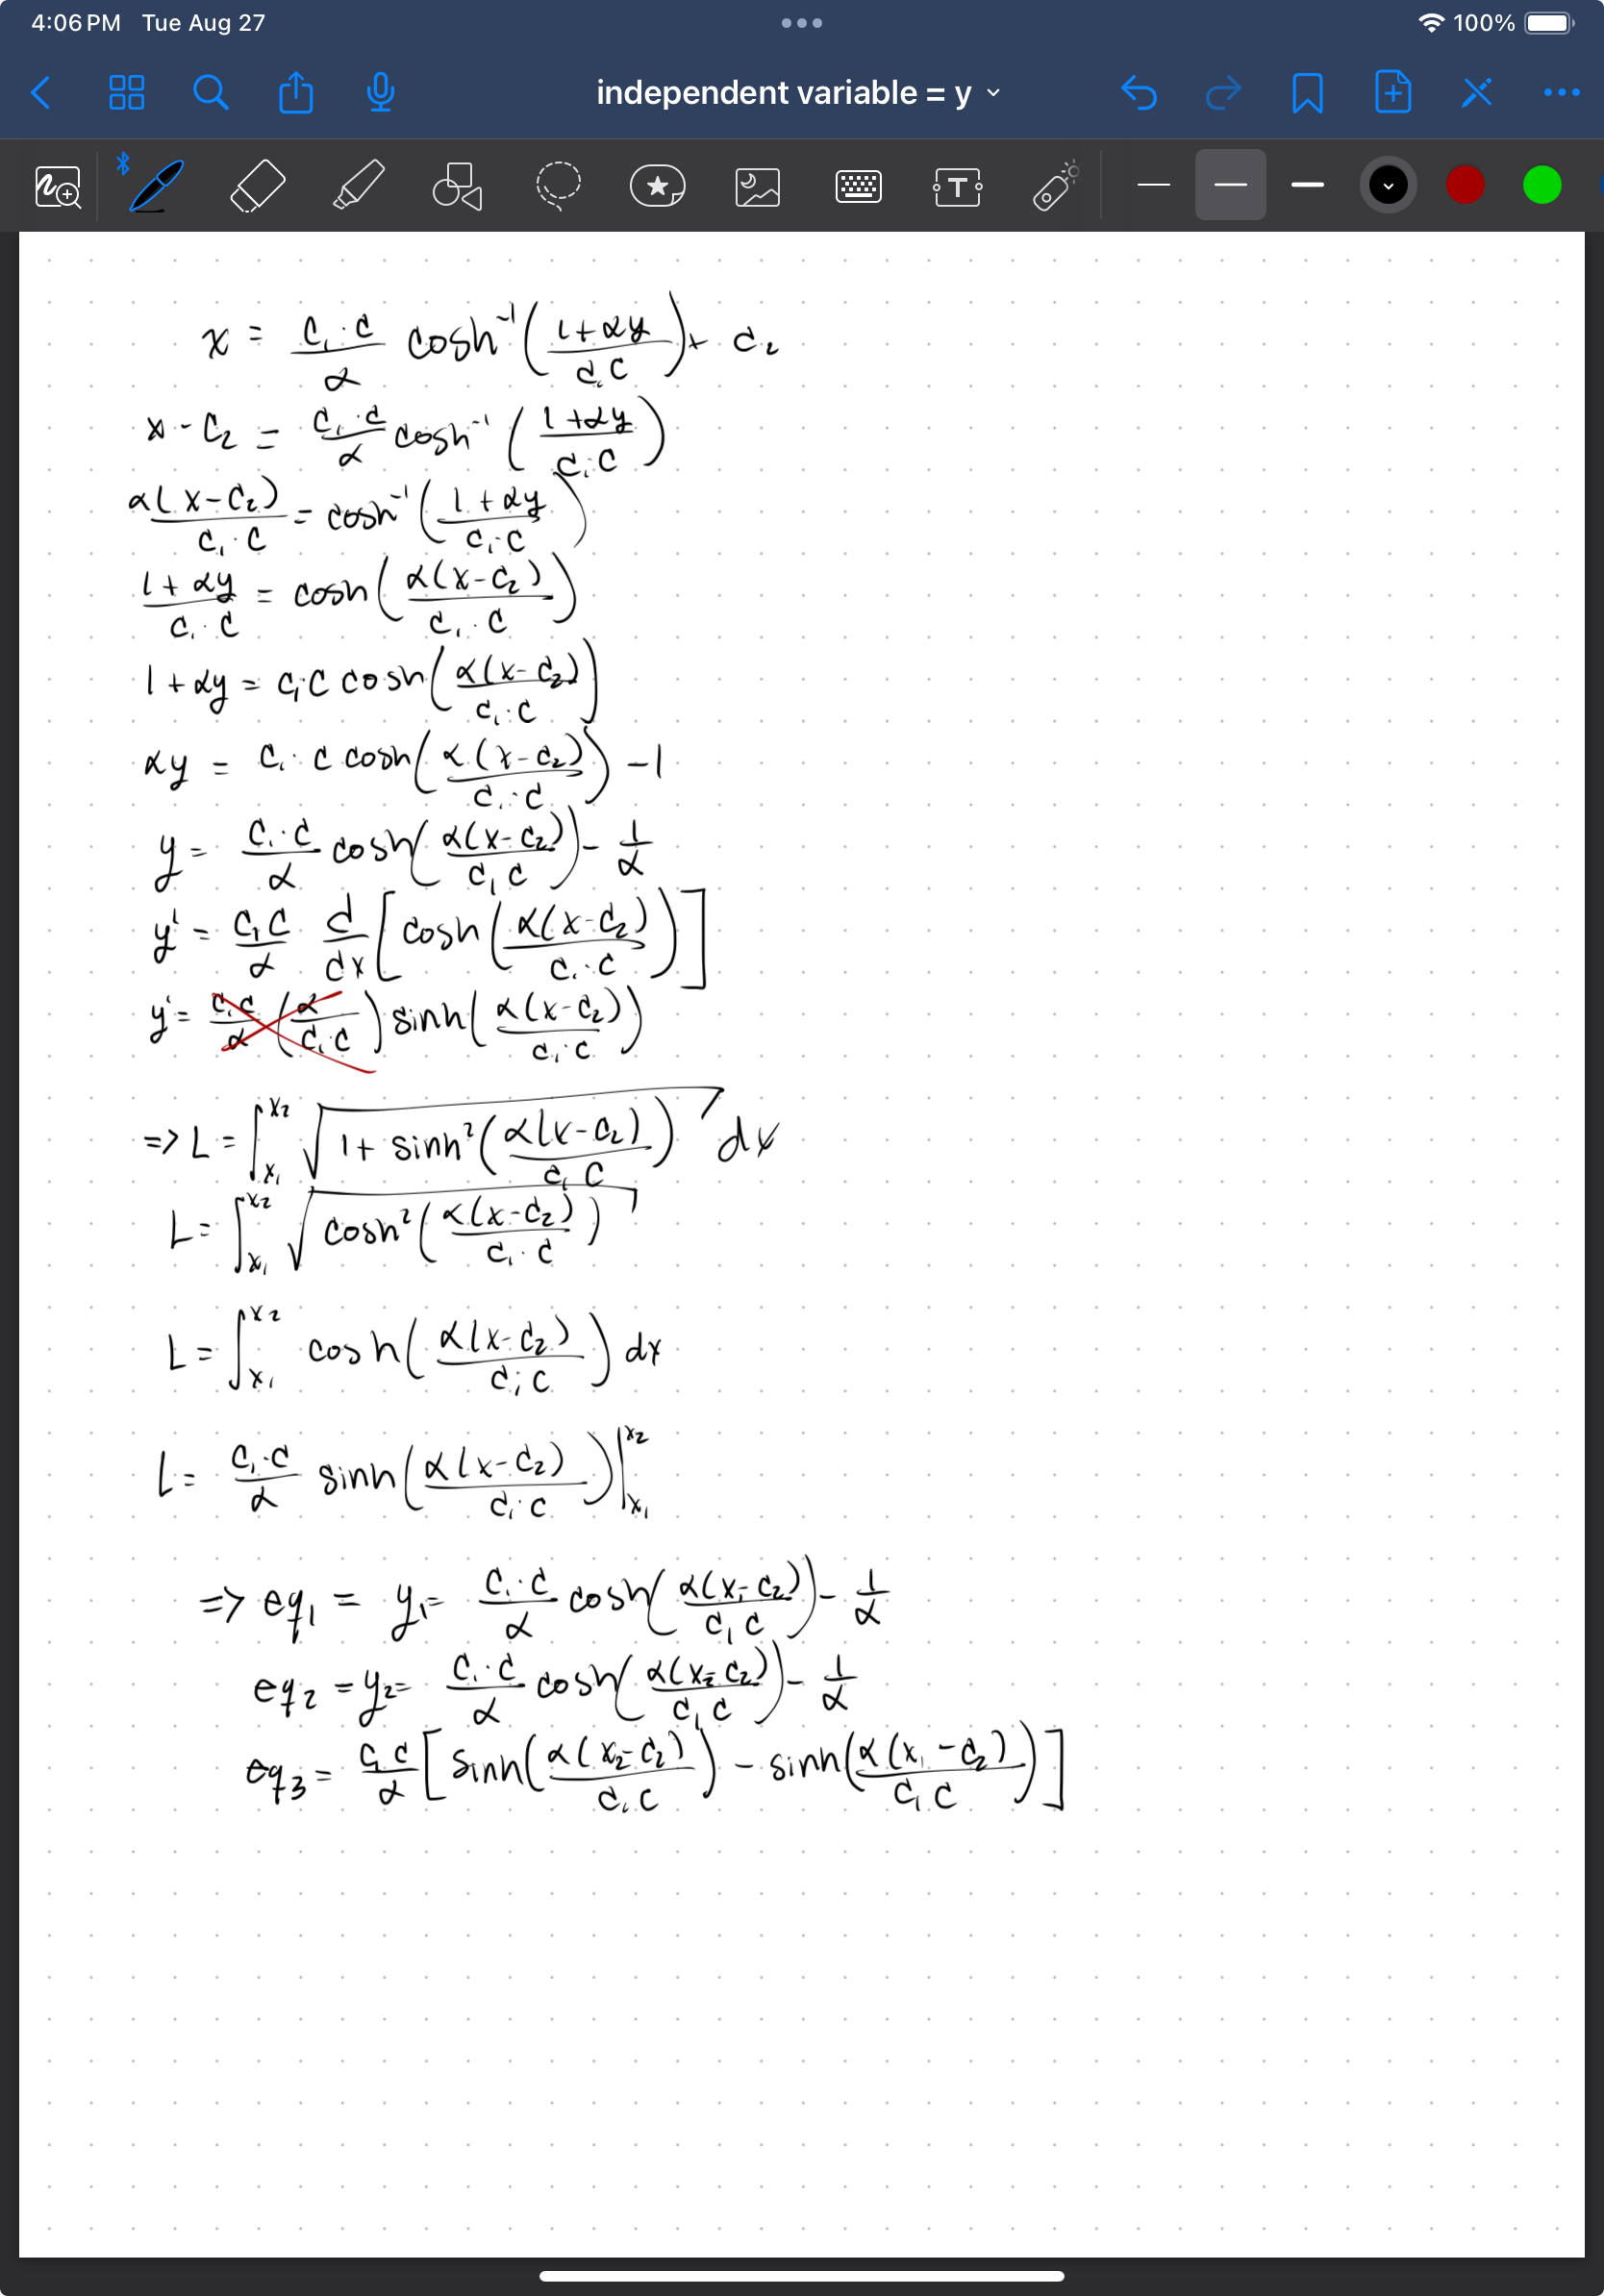 4:06 PM Tue Aug 27 100%
independent variable = y
T
x = \frac{c_1 \cdot c}{α} cosh^{-1}(\frac{1+αy}{c_1 c}) + c_2
x - c_2 = \frac{c_1 \cdot c}{α} cosh^{-1}(\frac{1+αy}{c_1 \cdot c})
\frac{α(x-c_2)}{c_1 \cdot c} = cosh^{-1}(\frac{1+αy}{c_1 \cdot c})
\frac{1+αy}{c_1 \cdot c} = cosh(\frac{α(x-c_2)}{c_1 \cdot c})
1+αy = c_1 \cdot c cosh(\frac{α(x-c_2)}{c_1 \cdot c})
αy = c_1 \cdot c cosh(\frac{α(x-c_2)}{c_1 \cdot c}) - 1
y = \frac{c_1 \cdot c}{α} cosh(\frac{α(x-c_2)}{c_1 c}) - \frac{1}{α}
y' = \frac{c_1 c}{α} \frac{d}{dx}[cosh(\frac{α(x-c_2)}{c_1 \cdot c})]
y' = \frac{c_1 c}{α}(\frac{α}{c_1 c}) sinh(\frac{α(x-c_2)}{c_1 \cdot c})
=> L = \int_{x_1}^{x_2} \sqrt{1 + sinh^2(\frac{α(x-c_2)}{c_1 c})} dx
L = \int_{x_1}^{x_2} \sqrt{cosh^2(\frac{α(x-c_2)}{c_1 \cdot c})}
L = \int_{x_1}^{x_2} cosh(\frac{α(x-c_2)}{c_1 c}) dx
L = \frac{c_1 \cdot c}{α} sinh(\frac{α(x-c_2)}{c_1 \cdot c})|_{x_1}^{x_2}
=> eq_1 = y_1 = \frac{c_1 \cdot c}{α} cosh(\frac{α(x_1-c_2)}{c_1 c}) - \frac{1}{α}
eq_2 = y_2 = \frac{c_1 \cdot c}{α} cosh(\frac{α(x_2-c_2)}{c_1 c}) - \frac{1}{α}
eq_3 = \frac{c_1 c}{α}[sinh(\frac{α(x_2-c_2)}{c_1 c}) - sinh(\frac{α(x_1-c_2)}{c_1 c})]